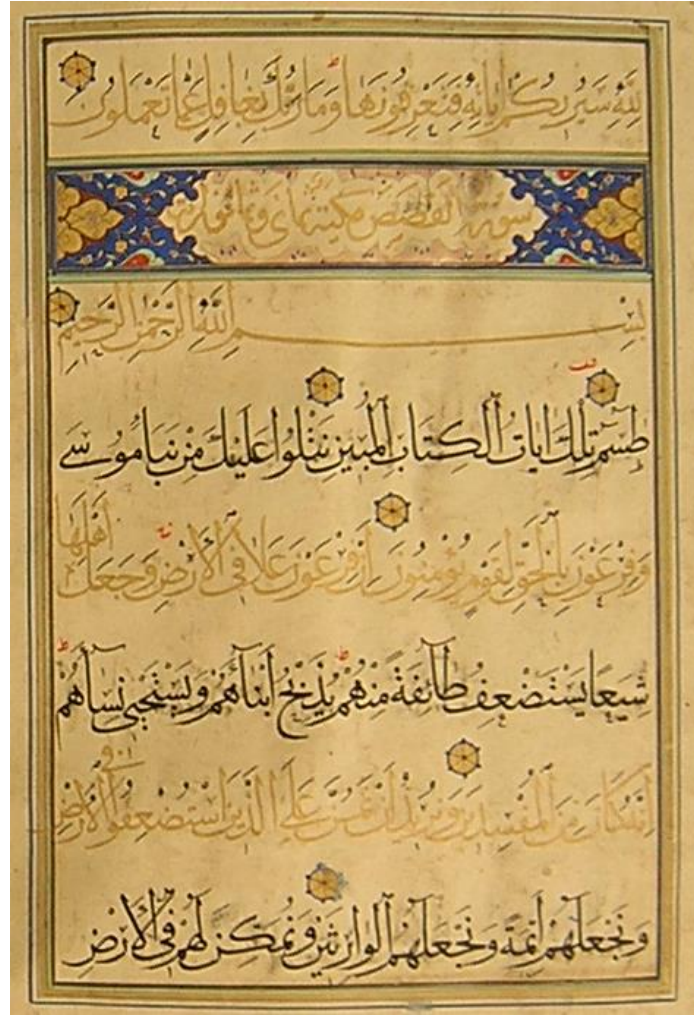 لِلَّهِ سَيُرِيكُمْ آيَاتِهِ فَتَعْرِفُونَهَا وَمَا رَبُّكَ بِغَافِلٍ عَمَّا تَعْمَلُونَ
سورة القصص مكية ثماني وثمانون آية
بِسْمِ اللَّهِ الرَّحْمَنِ الرَّحِيمِ
طسم تِلْكَ آيَاتُ الْكِتَابِ الْمُبِينِ نَتْلُوا عَلَيْكَ مِنْ نَبَإِ مُوسَى
وَفِرْعَوْنَ بِالْحَقِّ لِقَوْمٍ يُؤْمِنُونَ إِنَّ فِرْعَوْنَ عَلَا فِي الْأَرْضِ وَجَعَلَ أَهْلَهَا
شِيَعًا يَسْتَضْعِفُ طَائِفَةً مِنْهُمْ يُذَبِّحُ أَبْنَاءَهُمْ وَيَسْتَحْيِي نِسَاءَهُمْ
إِنَّهُ كَانَ مِنَ الْمُفْسِدِينَ وَنُرِيدُ أَنْ نَمُنَّ عَلَى الَّذِينَ اسْتُضْعِفُوا فِي الْأَرْضِ
وَنَجْعَلَهُمْ أَئِمَّةً وَنَجْعَلَهُمُ الْوَارِثِينَ وَنُمَكِّنَ لَهُمْ فِي الْأَرْضِ